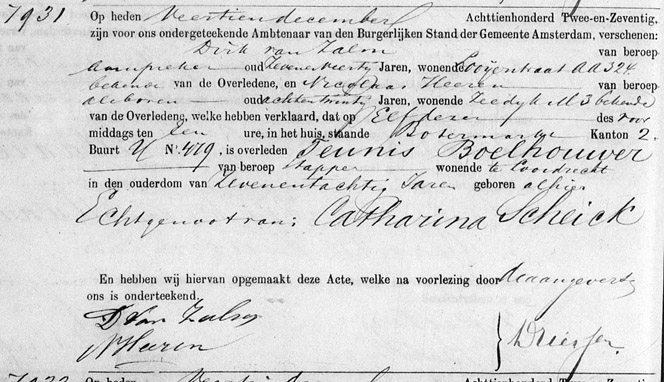 7931
Op heden Veertien december Achttienhonderd Twee-en-Zeventig,
zijn voor ons ondergeteekende Ambtenaar van den Burgerlijken Stand der Gemeente Amsterdam, verschenen:
Dirk van Zalm van beroep
Aanspreker oud Zevenenveertig Jaren, wonende Looijerstraat AA 324
bekende van de Overledene, en Nicolaas Heeren van beroep
als boven oud achtentwintig Jaren, wonende Zeedijk M 3 bekende
van de Overledene, welke hebben verklaard, dat op Elf dezer des voor
middags ten een ure, in het huis, staande Botermarkt Kanton 2.
Buurt U No. 479, is overleden Teunis Boelhouwer
van beroep Tapper wonende te Loosdrecht
in den ouderdom van Zevenentachtig Jaren geboren alhier
Echtgenoot van: Catharina Scheick
En hebben wij hiervan opgemaakt deze Acte, welke na voorlezing door de aangevers
ons is onderteekend,
D Van Zalm
N Heeren
Op heden Achttienhonderd Twee-en-Zeventig